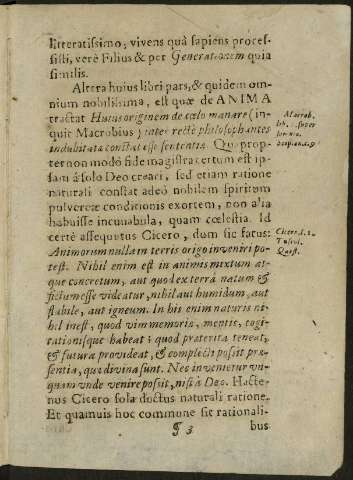 litteratissimo, vivens quâ sapiens proces-
sisti, verè Filius & per Generationem quia
similis.
Altera huius libri pars, & quidem om-
nium nobilissima, est quæ de ANIMA
tractat Huius originem de cœlo manare (in-
quit Macrobius) inter rectè philosophantes
indubitata constat esse sententia. Quaprop-
ter non modò fide magistra certum est ip-
sam à solo Deo creari, sed etiam ratione
naturali constat adeò nobilem spiritum
pulvereæ conditionis exortem, non alia
habuisse incunabula, quam cœlestia. Id
certè assequutus Cicero, dum sic fatus:
Animorum nulla in terris origo inveniri po-
test. Nihil enim est in animis mixtum at-
que concretum, aut quod ex terra natum &
fictum esse videatur, nihil aut humidum, aut
flabile, aut igneum. In his enim naturis ni-
hil inest, quod vim memoriæ, mentis, cogi-
tationisque habeat; quod præterita teneat,
& futura provideat, & complecti possit præ-
sentia, quæ divina sunt. Nec invenietur un-
quam unde venire possit, nisi à Deo. Hacte-
nus Cicero sola doctus naturali ratione.
Et quamuis hoc commune sit rationali-
¶ 3 bus
Macrob.
lib. super
somniū
Scipion. c. 9
Cicero. l. 1.
Tuscul.
Quæst.